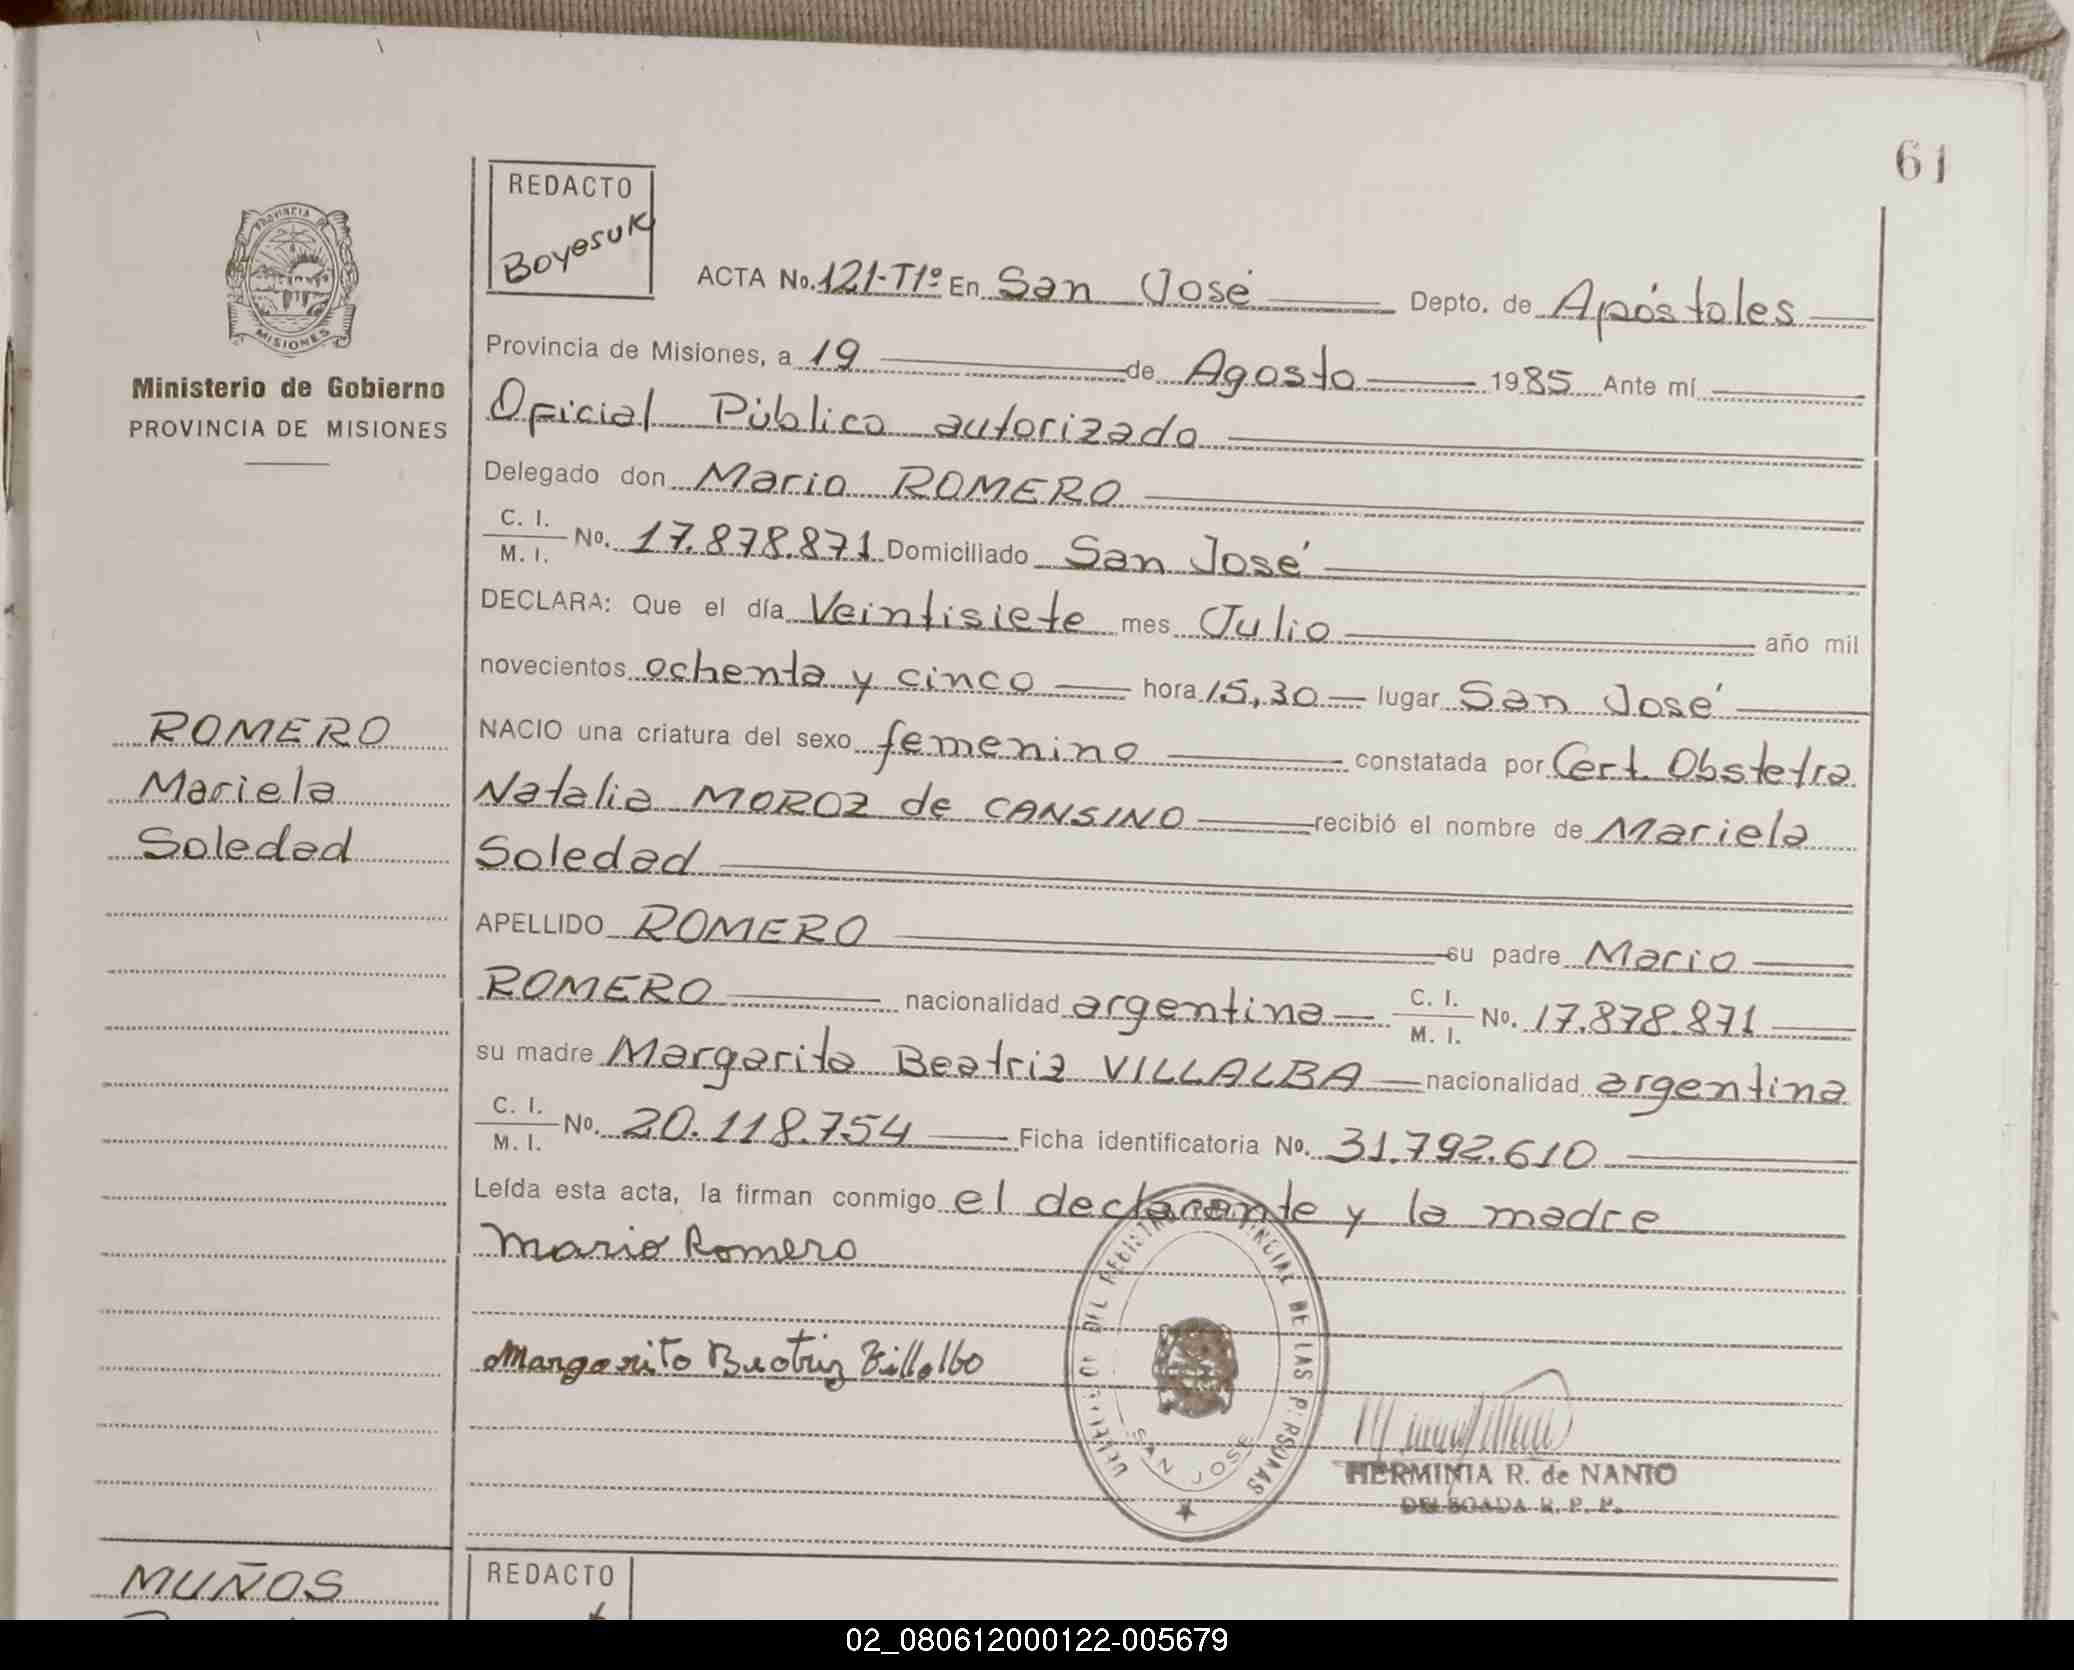 61
REDACTO
Boyesuk
ACTA No. 121-T1º En San José Depto. de Apóstoles
Provincia de Misiones, a 19 de Agosto 1985 Ante mí
Oficial Público autorizado
Delegado don Mario ROMERO
C. I.
M. I. No. 17.878.871 Domiciliado San José
DECLARA: Que el día Veintisiete mes Julio año mil
novecientos ochenta y cinco hora 15,30 lugar San José
NACIO una criatura del sexo femenino constatada por Cert. Obstetra
Natalia MOROZ de CANSINO recibió el nombre de Mariela
Soledad
APELLIDO ROMERO su padre Mario
ROMERO nacionalidad argentina C. I.
M. I. No. 17.878.871
su madre Margarita Beatriz VILLALBA nacionalidad argentina
C. I.
M. I. No. 20.118.754 Ficha identificatoria No. 31.792.610
Leída esta acta, la firman conmigo el declarante y la madre
Mario Romero
Margarita Beatriz Billalba
HERMINIA R. de NANTO
DELEGADA R. P. P.
DEL REGISTRO PROVINCIAL DE LAS PERSONAS
SAN JOSE
PROVINCIA DE
MISIONES
Ministerio de Gobierno
PROVINCIA DE MISIONES
ROMERO
Mariela
Soledad
MUÑOS
REDACTO
02_080612000122-005679